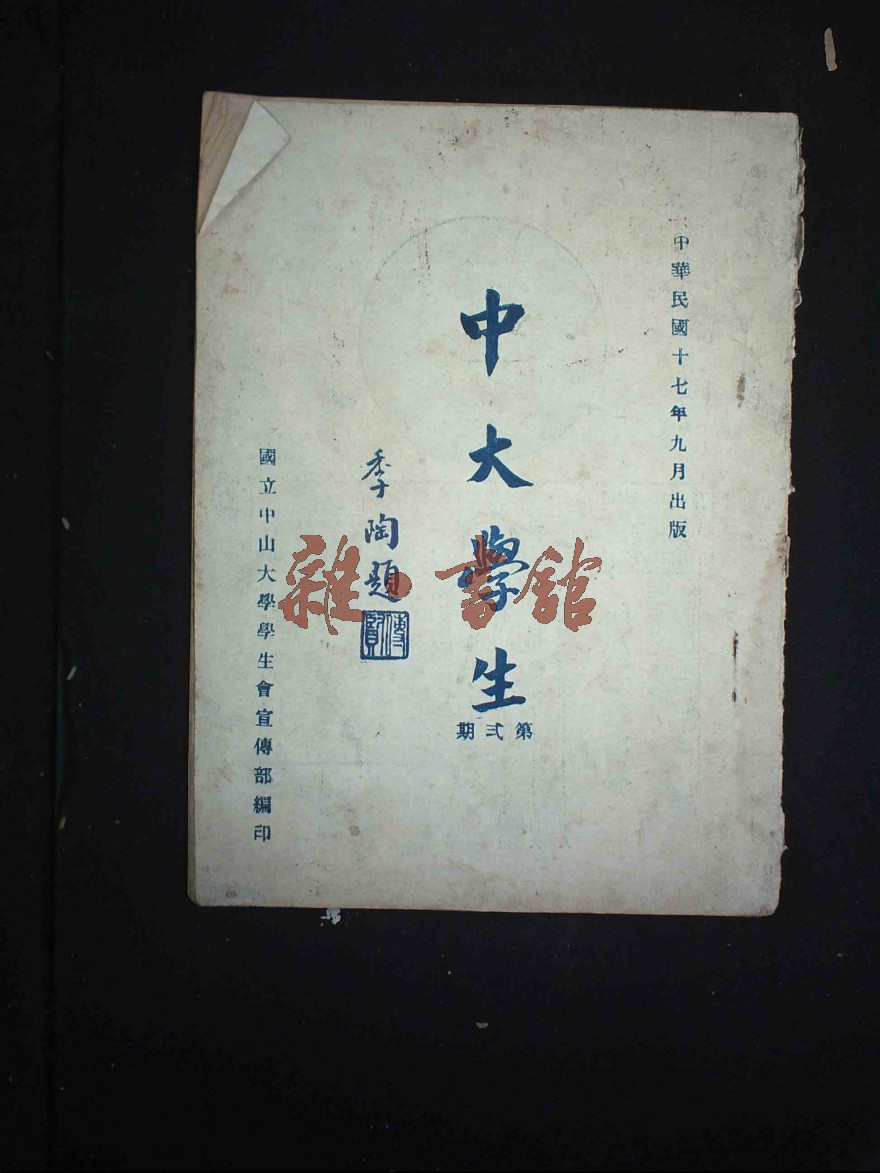 中華民國十七年九月出版
中大學生
第弍期
季陶題
傳賢
國立中山大學學生會宣傳部編印
雜書館